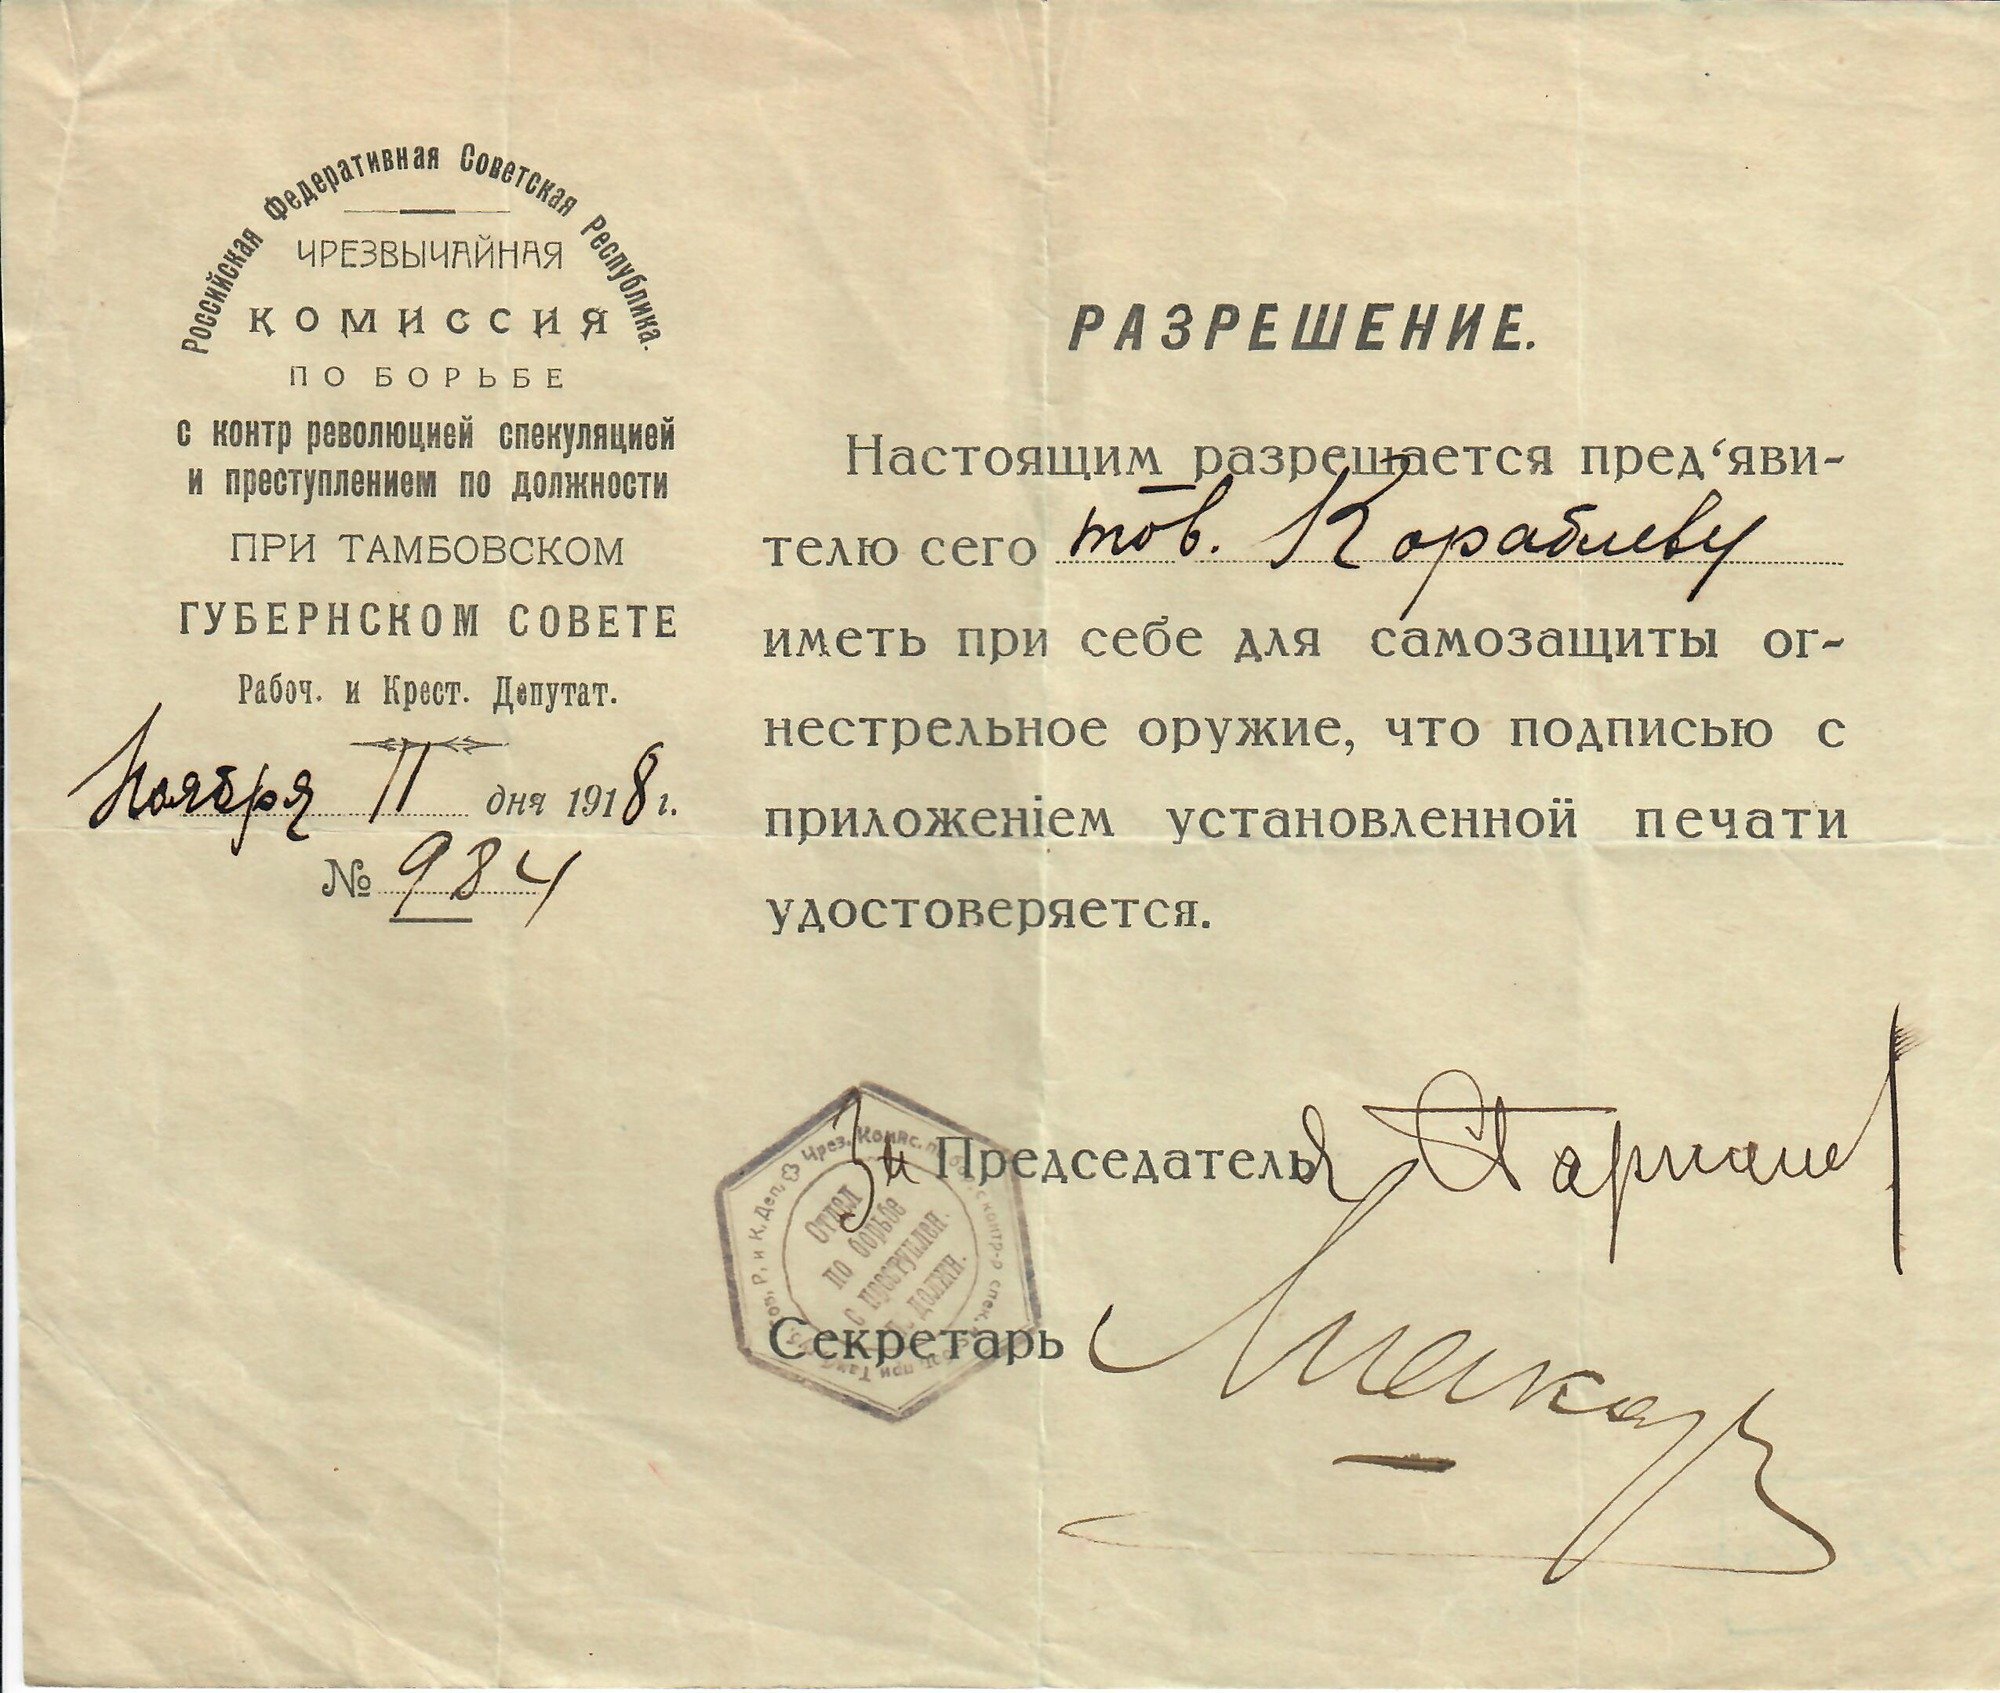 Российская Федеративная Советская Республика.
ЧРЕЗВЫЧАЙНАЯ
КОМИССИЯ
ПО БОРЬБЕ
с контр революцией спекуляцией
и преступлением по должности
ПРИ ТАМБОВСКОМ
ГУБЕРНСКОМ СОВЕТЕ
Рабоч. и Крест. Депутат.
Ноября 11 дня 1918 г.
№ 984
РАЗРЕШЕНИЕ.
Настоящим разрешается пред‘яви-
телю сего тов. Кораблеву
иметь при себе для самозащиты ог-
нестрельное оружие, что подписью с
приложенiем установленной печати
удостоверяется.
Зм Председателя
Секретарь
Чрез. Комис. по бор. с контр-р спек. при Тамб. Р. и К. Деп.
Отдел
по борьбе
с преступлен.
п. должн.